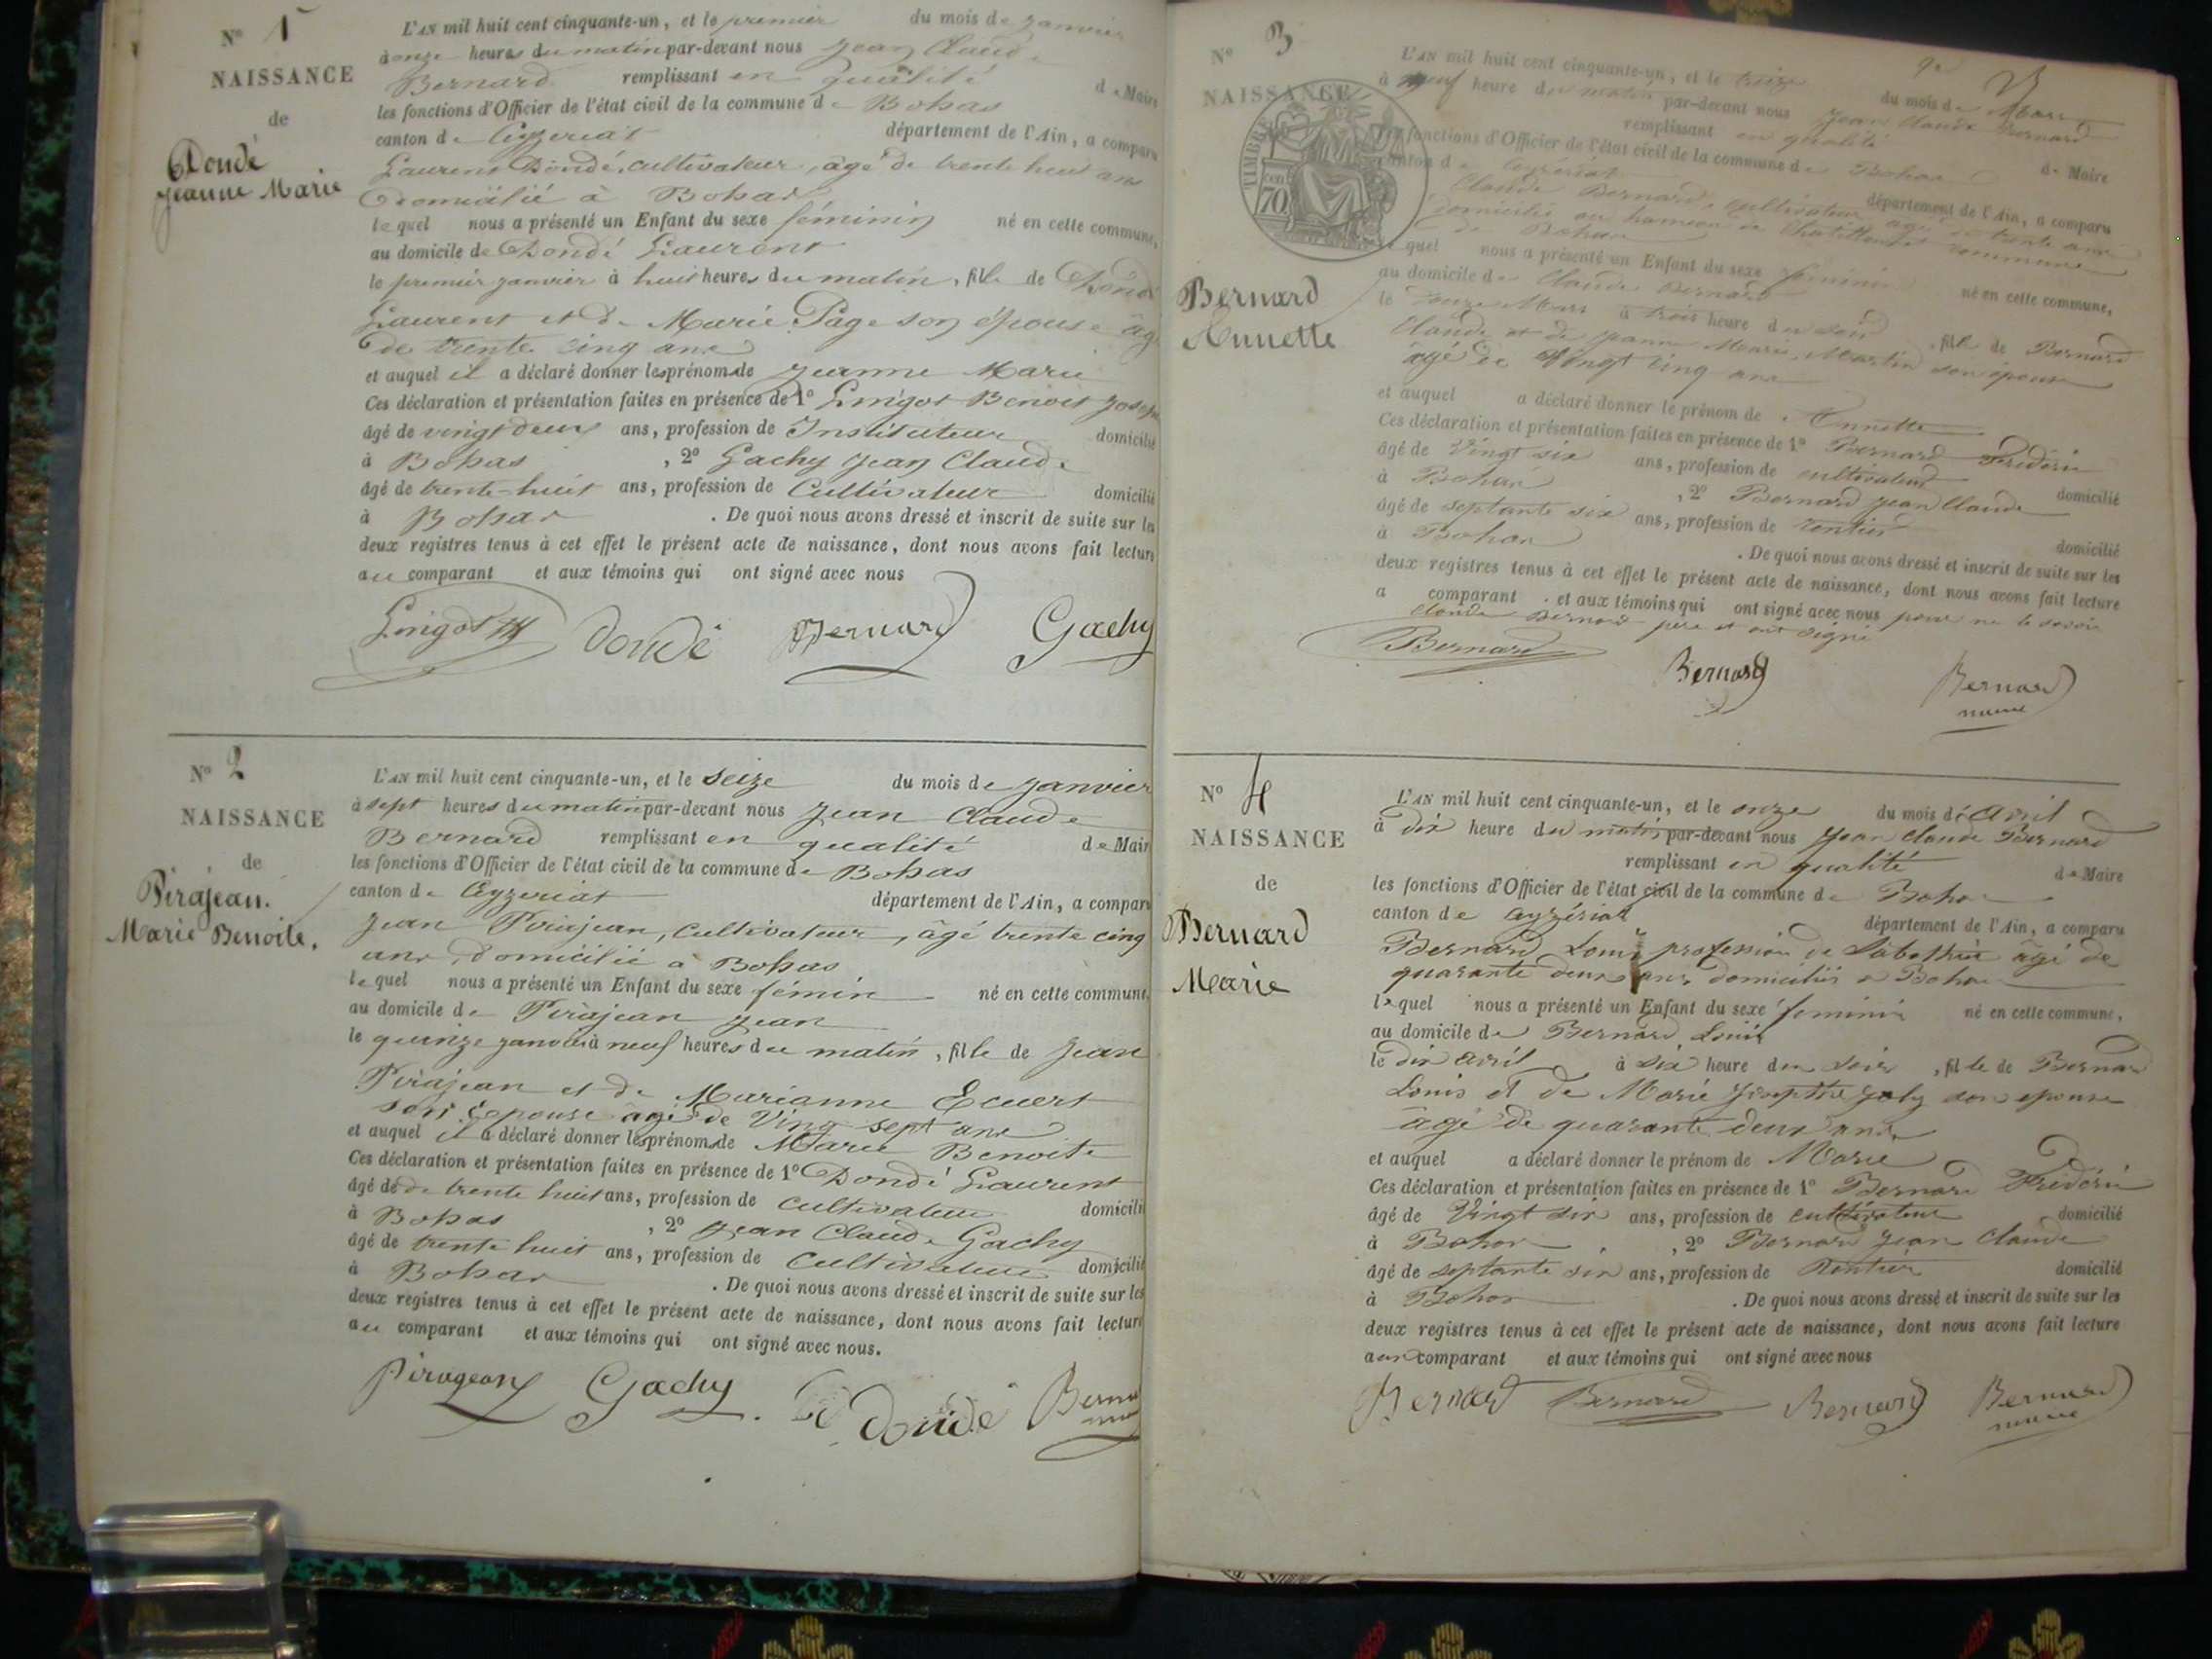 N° 1
NAISSANCE
de
Dondé
Jeanne Marie
L'AN mil huit cent cinquante-un, et le premier du mois de janvier
à onze heures du matin par-devant nous Jean Claude
Bernard remplissant en qualité de Maire
les fonctions d'Officier de l'état civil de la commune de Bohas
canton de Ceyzeriat département de l'Ain, a comparu
Laurent Dondé, cultivateur, agé de trente huit ans
Domicilié à Bohas
lequel nous a présenté un Enfant du sexe féminin né en cette commune,
au domicile de Dondé Laurent
le premier janvier à huit heures du matin, fille de Dondé
Laurent et de Marie Page son épouse âgé
de trente cinq ans
et auquel il a déclaré donner les prénoms de Jeanne Marie
Ces déclaration et présentation faites en présence de 1° Benoit Joseph
âgé de vingt deux ans, profession de Instituteur domicilié
à Bohas , 2° Gachy Jean Claude
âgé de trente-huit ans, profession de Cultivateur domicilié
à Bohas . De quoi nous avons dressé et inscrit de suite sur les
deux registres tenus à cet effet le présent acte de naissance, dont nous avons fait lecture
au comparant et aux témoins qui ont signé avec nous
Dondé Bernard Gachy
N° 2
NAISSANCE
de
Pirajean.
Marie Benoite.
L'AN mil huit cent cinquante-un, et le seize du mois de janvier
à sept heures du matin par-devant nous Jean Claude
Bernard remplissant en qualité de Maire
les fonctions d'Officier de l'état civil de la commune de Bohas
canton de Ceyzeriat département de l'Ain, a comparu
Jean Pirajean, cultivateur, âgé trente cinq
ans, domicilié à Bohas
lequel nous a présenté un Enfant du sexe fémin né en cette commune,
au domicile de Pirajean Jean
le quinze janvier à neuf heures du matin, fille de Jean
Pirajean et de Marianne Ecuert
son épouse âgé de Ving sept ans
et auquel il a déclaré donner les prénoms de Marie Benoite
Ces déclaration et présentation faites en présence de 1° Dondé Laurent
âgé de de trente huit ans, profession de cultivateur domicilié
à Bohas , 2° Jean Claude Gachy
âgé de trente huit ans, profession de Cultivateur domicilié
à Bohas . De quoi nous avons dressé et inscrit de suite sur les
deux registres tenus à cet effet le présent acte de naissance, dont nous avons fait lecture
au comparant et aux témoins qui ont signé avec nous.
Pirageon Gachy. Dondé Bernard
N° 3
NAISSANCE
TIMBRE
70
Bernard
Annette
L'AN mil huit cent cinquante-un, et le treize du mois de Mars
à neuf heure du matin par-devant nous Jean Claude Bernard
remplissant en qualité de Maire
les fonctions d'Officier de l'état civil de la commune de Bohas
canton de Ceyzériat département de l'Ain, a comparu
Claude Bernard, cultivateur agé de trente ans
domicilié au hameau de commune
de Bohas
lequel nous a présenté un Enfant du sexe féminin né en cette commune,
au domicile de Claude Bernard
le Mars à trois heure du soir, fille de Bernard
Claude et de Jeanne Marie Martin son epouse
agé de Vingt cinq ans
et auquel a déclaré donner le prénom de Annette
Ces déclaration et présentation faites en présence de 1° Bernard Frédéric
âgé de Vingt six ans, profession de cultivateur domicilié
à Bohas , 2° Bernard Jean Claude
âgé de septante six ans, profession de rentier domicilié
à Bohas . De quoi nous avons dressé et inscrit de suite sur les
deux registres tenus à cet effet le présent acte de naissance, dont nous avons fait lecture
a comparant et aux témoins qui ont signé avec nous pour ne le savoir
Claude Bernard père et ont signé
Bernard Bernard Bernard
maire
N° 4
NAISSANCE
de
Bernard
Marie
L'AN mil huit cent cinquante-un, et le onze du mois d'Avril
à dix heure du matin par-devant nous Jean Claude Bernard
remplissant en qualité de Maire
les fonctions d'Officier de l'état civil de la commune de Bohas
canton de Ceyzériat département de l'Ain, a comparu
Bernard Louis profession de Sabottier âgé de
quarante deux ans domicilié a Bohas
lequel nous a présenté un Enfant du sexe feminin né en cette commune,
au domicile de Bernard Louis
le dix avril à six heure du soir, fille de Bernard
Louis et de Marie Joly son epouse
âgé de quarante deux ans
et auquel a déclaré donner le prénom de Marie
Ces déclaration et présentation faites en présence de 1° Bernard Frédéric
âgé de Vingt six ans, profession de cultivateur domicilié
à Bohas , 2° Bernard Jean Claude
âgé de septante six ans, profession de Rentier domicilié
à Bohas . De quoi nous avons dressé et inscrit de suite sur les
deux registres tenus à cet effet le présent acte de naissance, dont nous avons fait lecture
au comparant et aux témoins qui ont signé avec nous
Bernard Bernard Bernard Bernard
maire